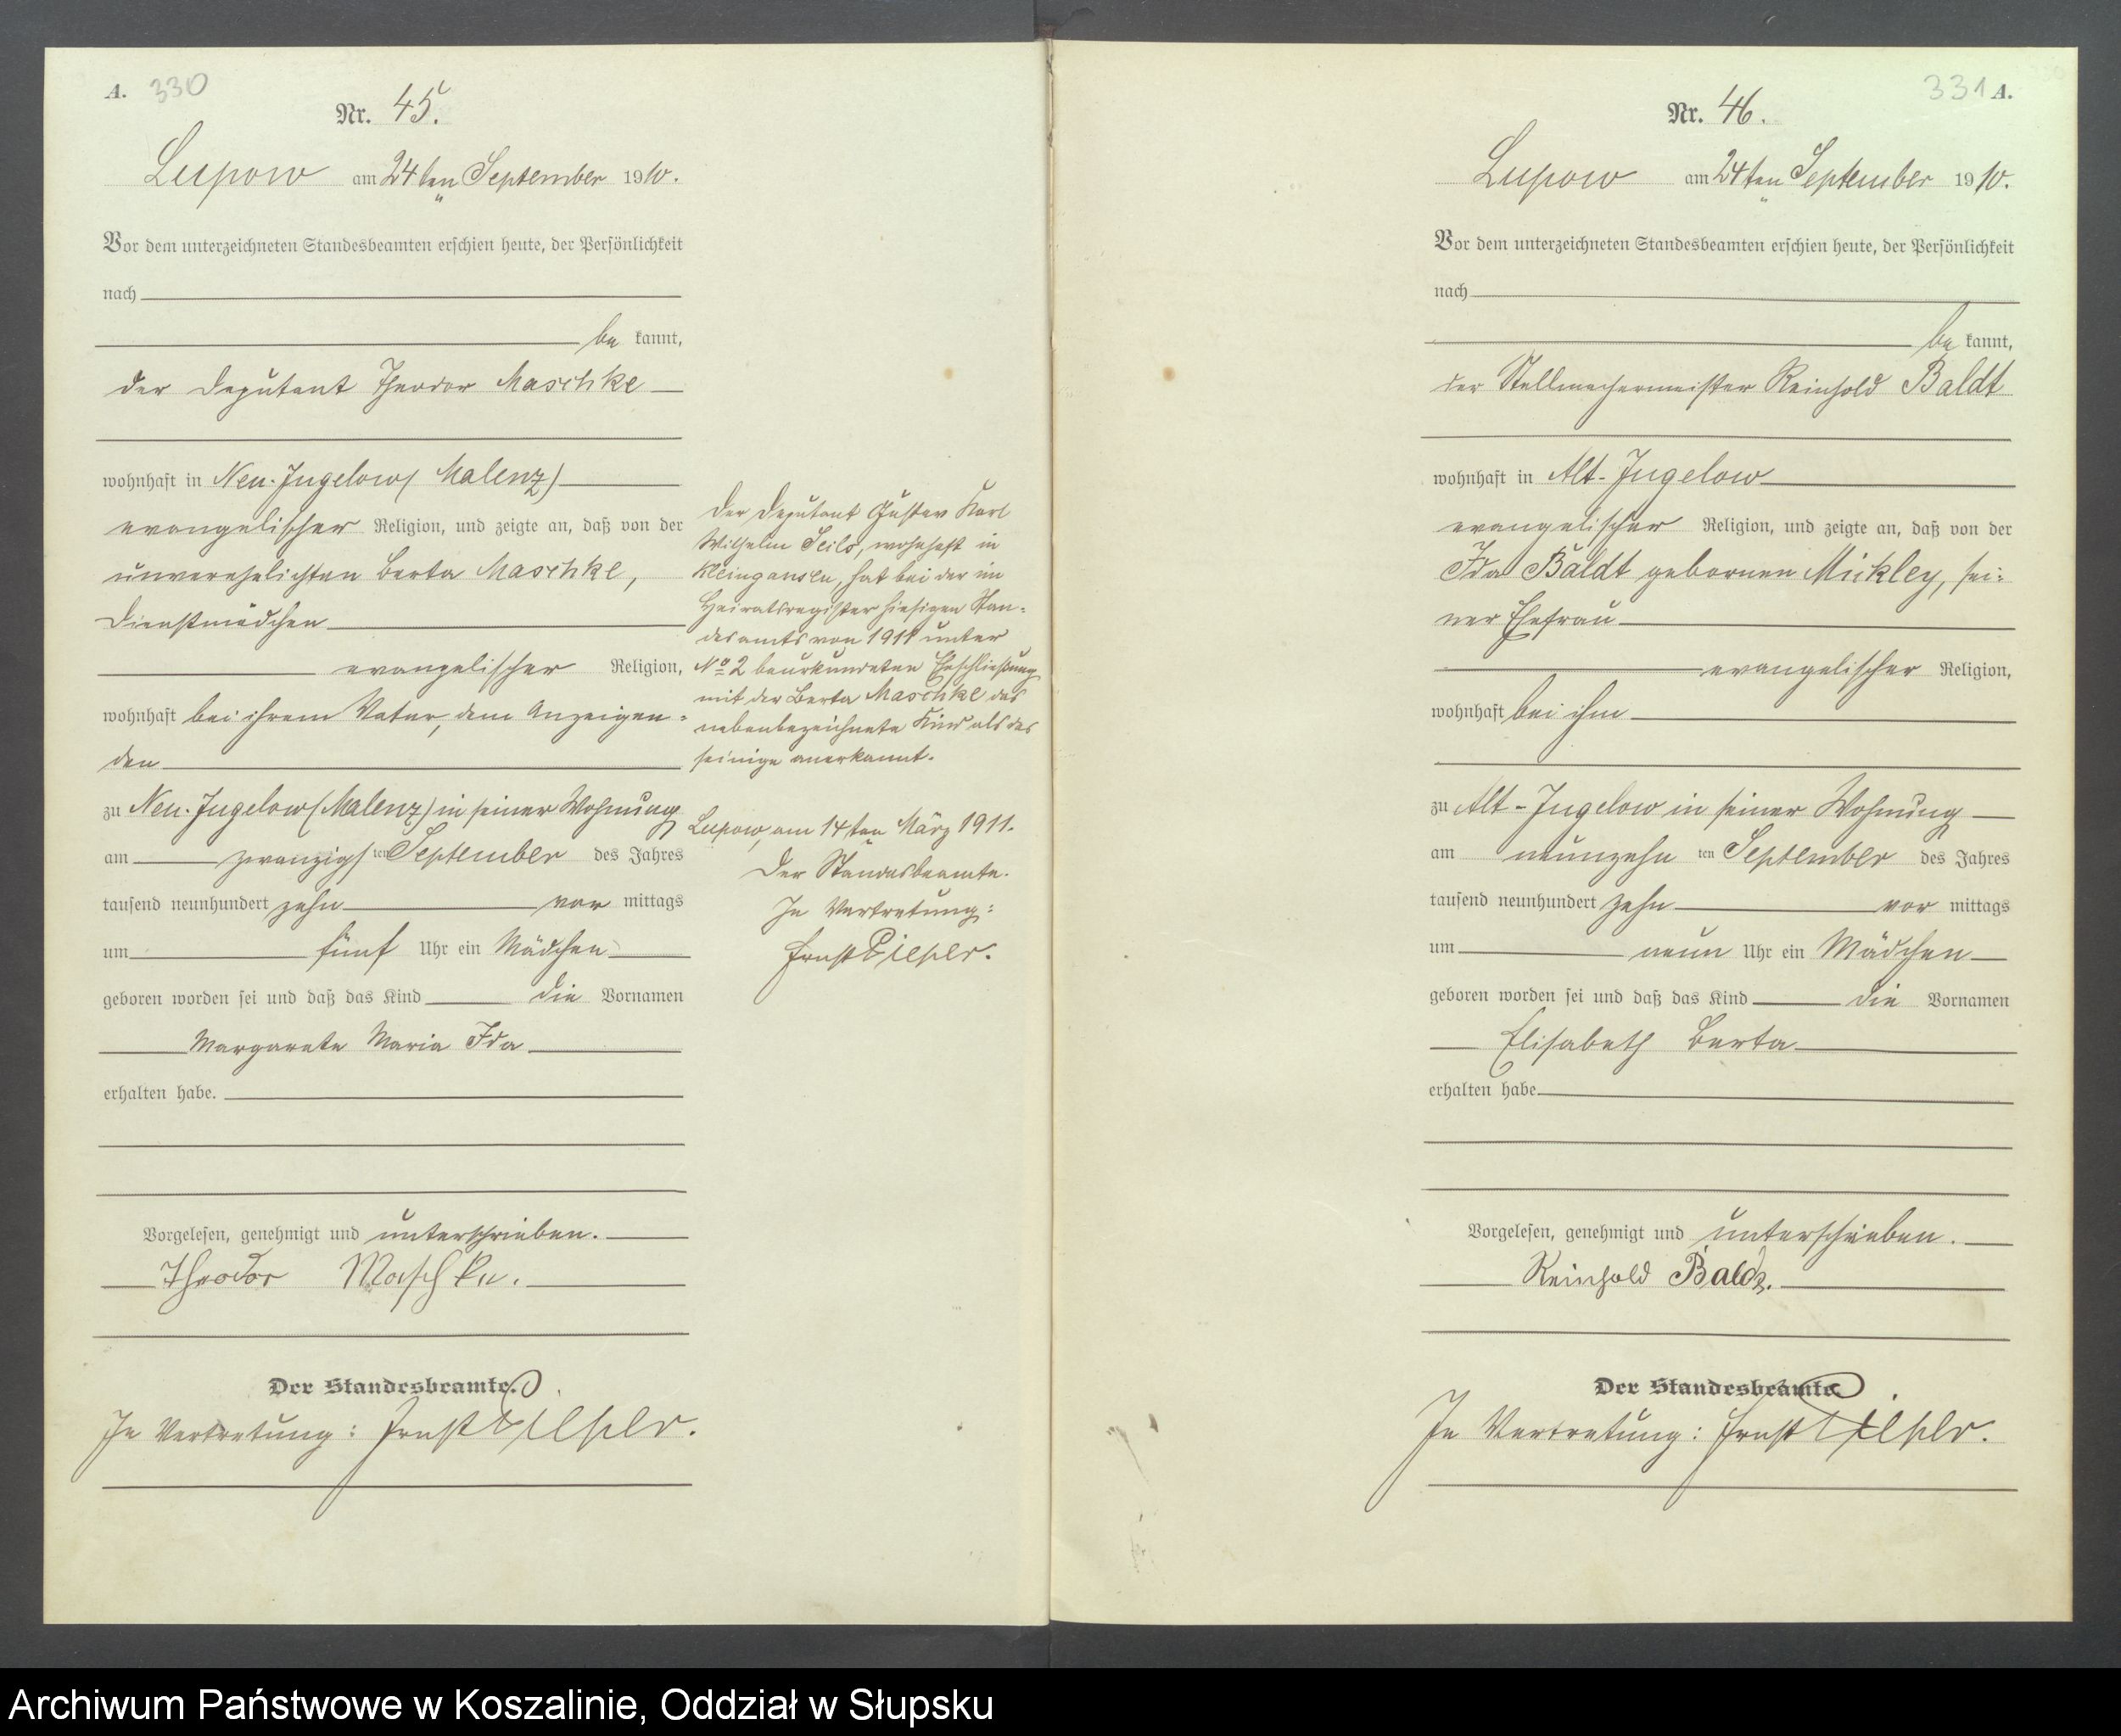 A. 330
Nr. 45.
Lupow am 24ten September 1910.
Vor dem unterzeichneten Standesbeamten erschien heute, der Persönlichkeit
nach
be kannt,
der Deputant Theodor Maschke
wohnhaft in Neu-Jugelow (Malenz)
evangelischer Religion, und zeigte an, daß von der
unverehelichten Berta Maschke,
Dienstmädchen
evangelischer Religion,
wohnhaft bei ihrem Vater, dem Anzeigen-
den
zu Neu-Jugelow (Malenz) in seiner Wohnung
am zwanzigsten September des Jahres
tausend neunhundert zehn vor mittags
um fünf Uhr ein Mädchen
geboren worden sei und daß das Kind die Vornamen
Margarete Maria Ida
erhalten habe.
Vorgelesen, genehmigt und unterschrieben.
Theodor Maschke.
Der Standesbeamte.
In Vertretung: Ernst
Der Deputant Gustav Karl
Wilhelm, wohnhaft in
Kleingansen, hat bei der im
Heiratsregister hiesigen Stan-
desamts von 1911 unter
No 2 beurkundeten Eheschließung
mit der Berta Maschke das
nebenbezeichnete Kind als das
seinige anerkannt.
Lupow, am 14ten März 1911.
Der Standesbeamte.
In Vertretung:
Ernst
331 A.
Nr. 46.
Lupow am 24ten September 1910.
Vor dem unterzeichneten Standesbeamten erschien heute, der Persönlichkeit
nach
be kannt,
der Stellmachermeister Reinhold Baldt
wohnhaft in Alt-Jugelow
evangelischer Religion, und zeigte an, daß von der
Ida Baldt gebornen Mickley, sei-
ner Ehefrau
evangelischer Religion,
wohnhaft bei ihm
zu Alt-Jugelow in seiner Wohnung
am neunzehn ten September des Jahres
tausend neunhundert zehn vor mittags
um neun Uhr ein Mädchen
geboren worden sei und daß das Kind die Vornamen
Elisabeth Berta
erhalten habe
Vorgelesen, genehmigt und unterschrieben.
Reinhold Baldt.
Der Standesbeamte.
In Vertretung: Ernst
Archiwum Państwowe w Koszalinie, Oddział w Słupsku